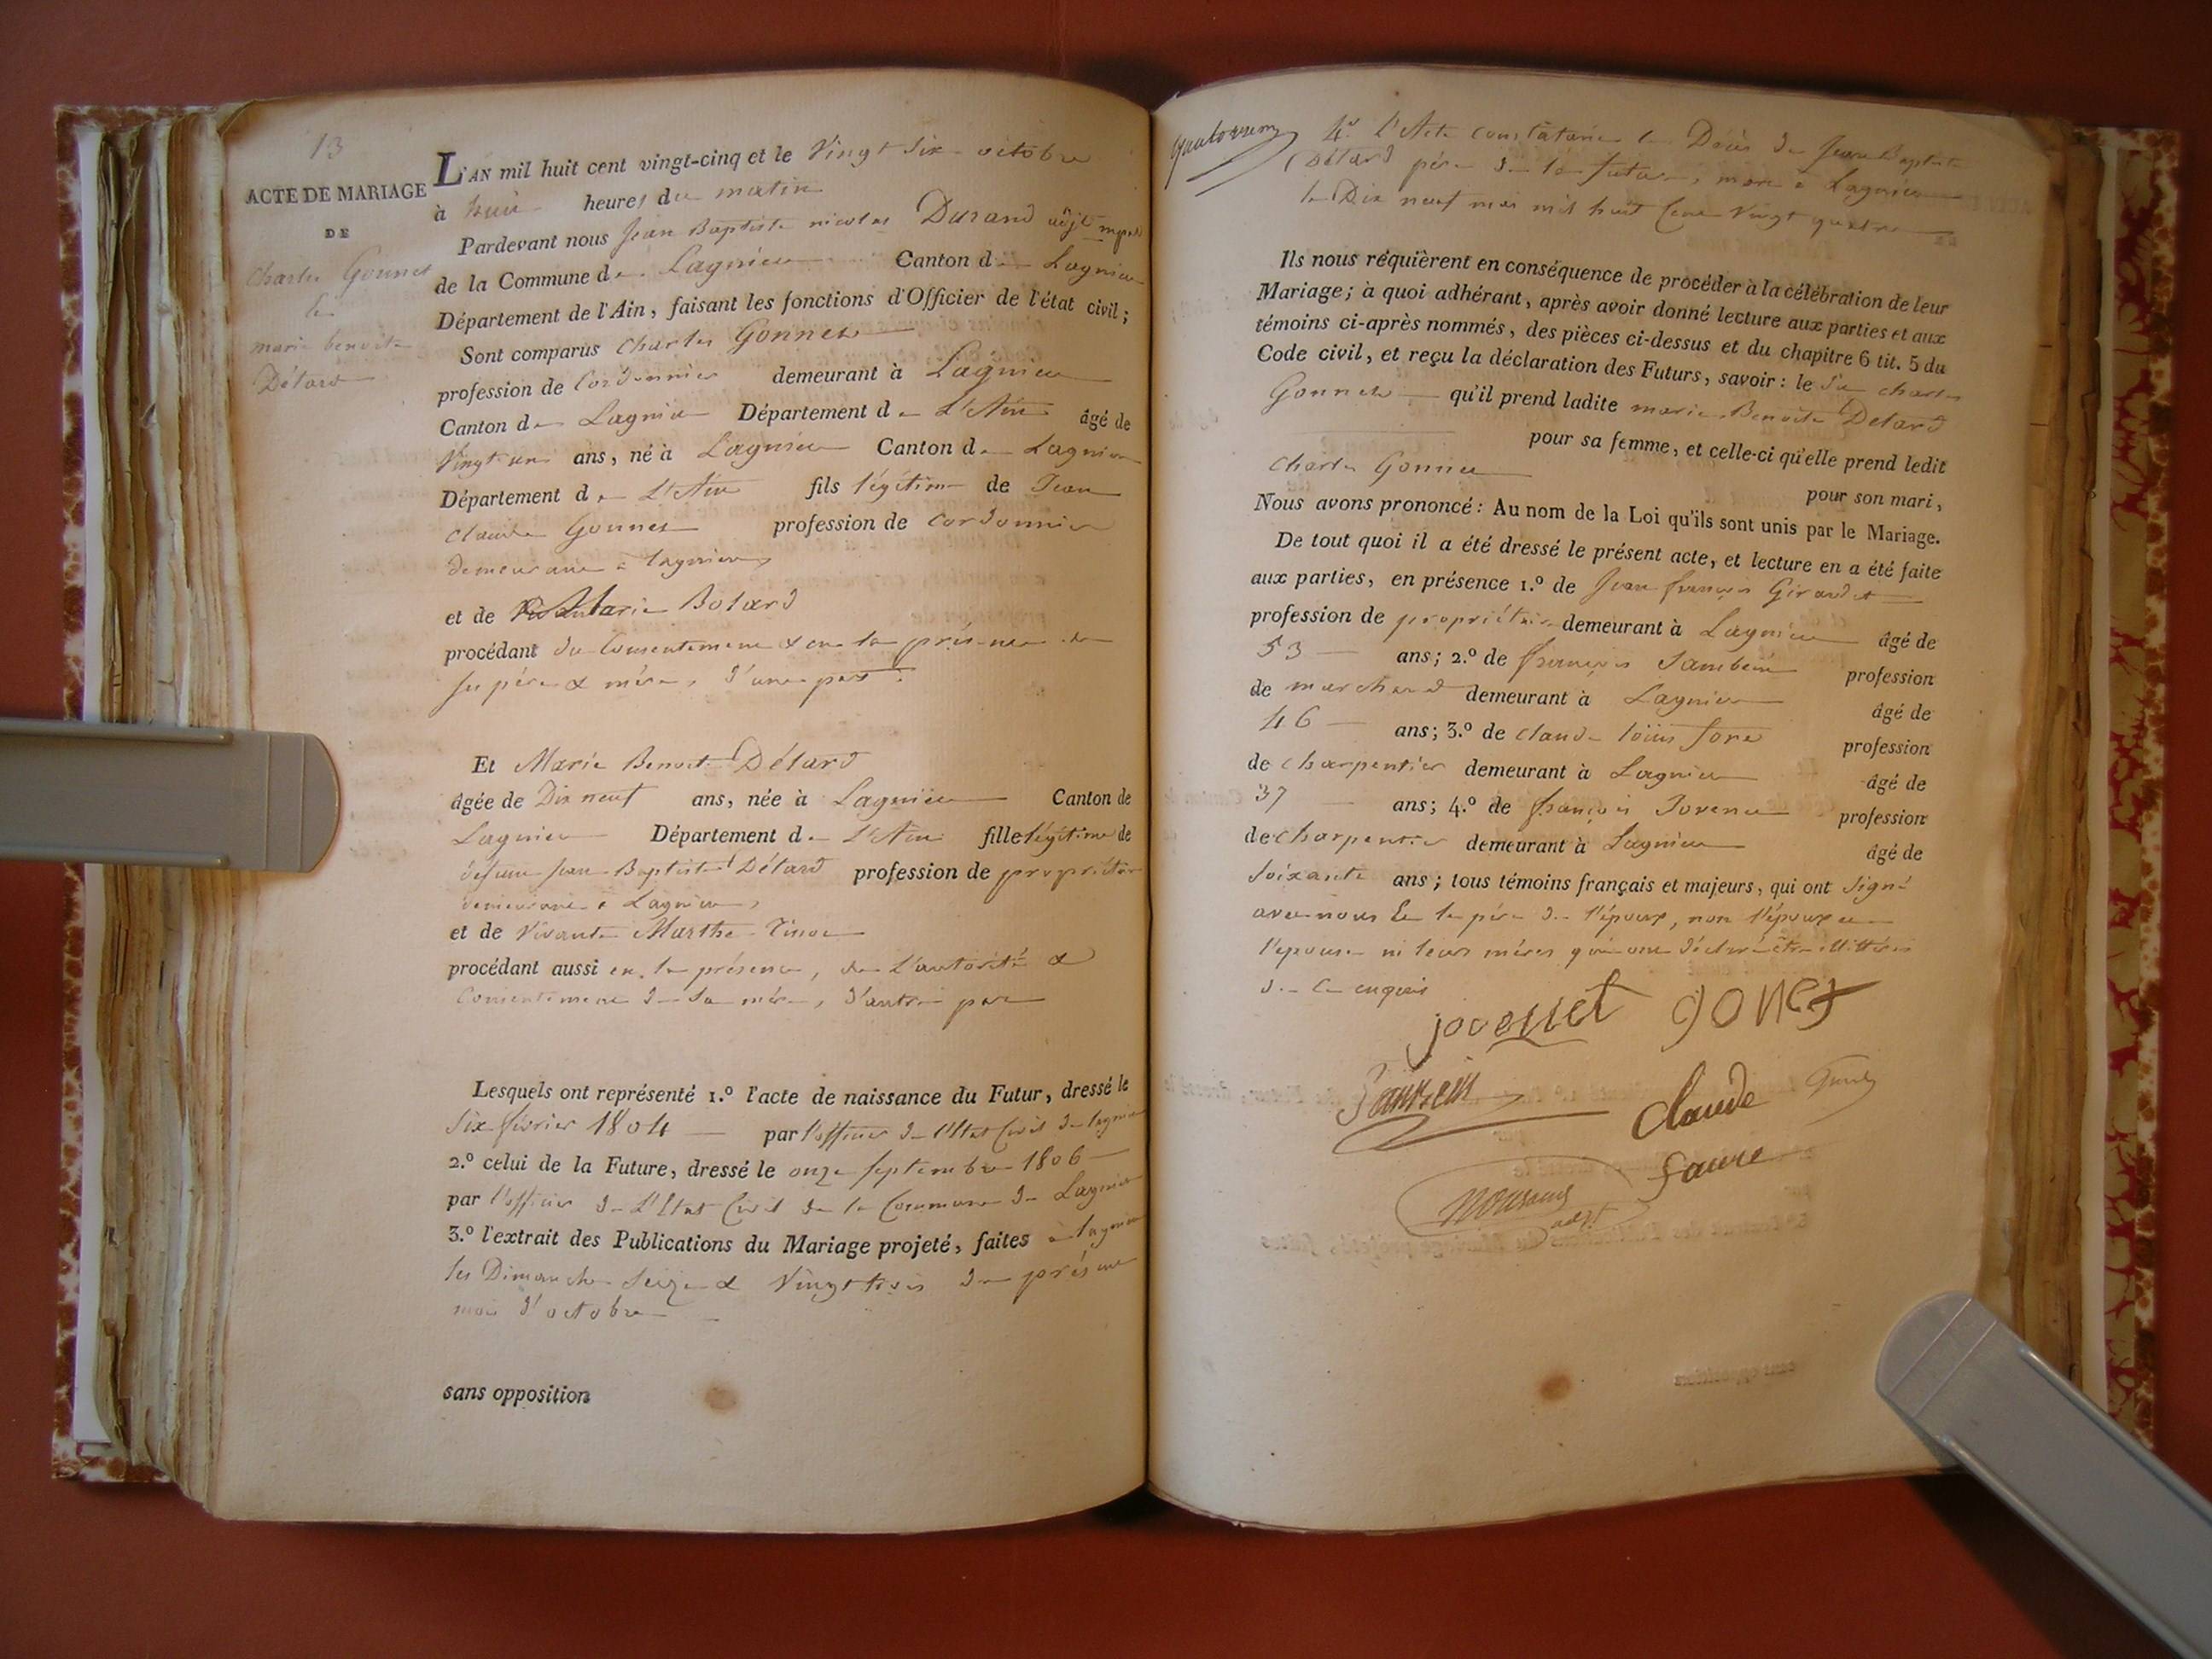 13
ACTE DE MARIAGE
DE
Charles Gonnet
Et
marie benoite
Détard
L'AN mil huit cent vingt-cinq et le Vingt Six octobre
à huit heures du matin
Pardevant nous Jean Baptiste nicolas Durand adjt
de la Commune de Lagnieu Canton de Lagnieu
Département de l'Ain, faisant les fonctions d'Officier de l'état civil;
Sont comparus Charles Gonnet
profession de Cordonnier demeurant à Lagnieu
Canton de Lagnieu Département de L'Ain âgé de
Vingt un ans, né à Lagnieu Canton de Lagnieu
Département de L'Ain fils légitime de Jean
Claude Gonnet profession de Cordonnier
demeurant à Lagnieu,
et de Marie Bolard
procédant du Consentement & en la présence de
ses père & mère, d'une part.
Et Marie Benoite Détard
âgée de Dix neuf ans, née à Lagnieu Canton de
Lagnieu Département de L'Ain fille légitime de
défunt Jean Baptiste Détard profession de propriétaire
demeurant à Lagnieu,
et de Vivante Marthe
procédant aussi en la présence, de L'autorité &
Consentement de Sa mère, d'autre part
Lesquels ont représenté 1.º l'acte de naissance du Futur, dressé le
Six février 1804 par l'officier de l'Etat Civil de lagnieu
2.º celui de la Future, dressé le onze Septembre 1806
par l'officier de L'Etat Civil de la Commune de Lagnieu
3.º l'extrait des Publications du Mariage projeté, faites à lagnieu
les Dimanche Seize & Vingt trois du présent
mois d'octobre
sans opposition
4.º l'Acte Constatant le Décès de Jean Baptiste
Détard père de la future, mort à Lagnieu
le Dix neuf mai mil huit Cent Vingt quatre
Ils nous requièrent en conséquence de procéder à la célébration de leur
Mariage; à quoi adhérant, après avoir donné lecture aux parties et aux
témoins ci-après nommés, des pièces ci-dessus et du chapitre 6 tit. 5 du
Code civil, et reçu la déclaration des Futurs, savoir: le Sr Charles
Gonnet qu'il prend ladite marie Benoite Détard
pour sa femme, et celle-ci qu'elle prend ledit
Charles Gonnet
pour son mari,
Nous avons prononcé: Au nom de la Loi qu'ils sont unis par le Mariage.
De tout quoi il a été dressé le présent acte, et lecture en a été faite
aux parties, en présence 1.º de Jean françois Girardet
profession de propriétaire demeurant à Lagnieu âgé de
53 ans; 2.º de françois Jambein profession
de marchand demeurant à Lagnieu âgé de
46 ans; 3.º de Claude louis fore profession
de charpentier demeurant à Lagnieu âgé de
37 ans; 4.º de françois Jovenet profession
de charpentier demeurant à Lagnieu âgé de
Soixante ans; tous témoins français et majeurs, qui ont Signé
avec nous Et le père de l'époux, non l'époux et
l'épouse ni leurs mères qui ont déclaré être illittérés
de Ce enquis
jovenet gonet
Claude
faure
adjt